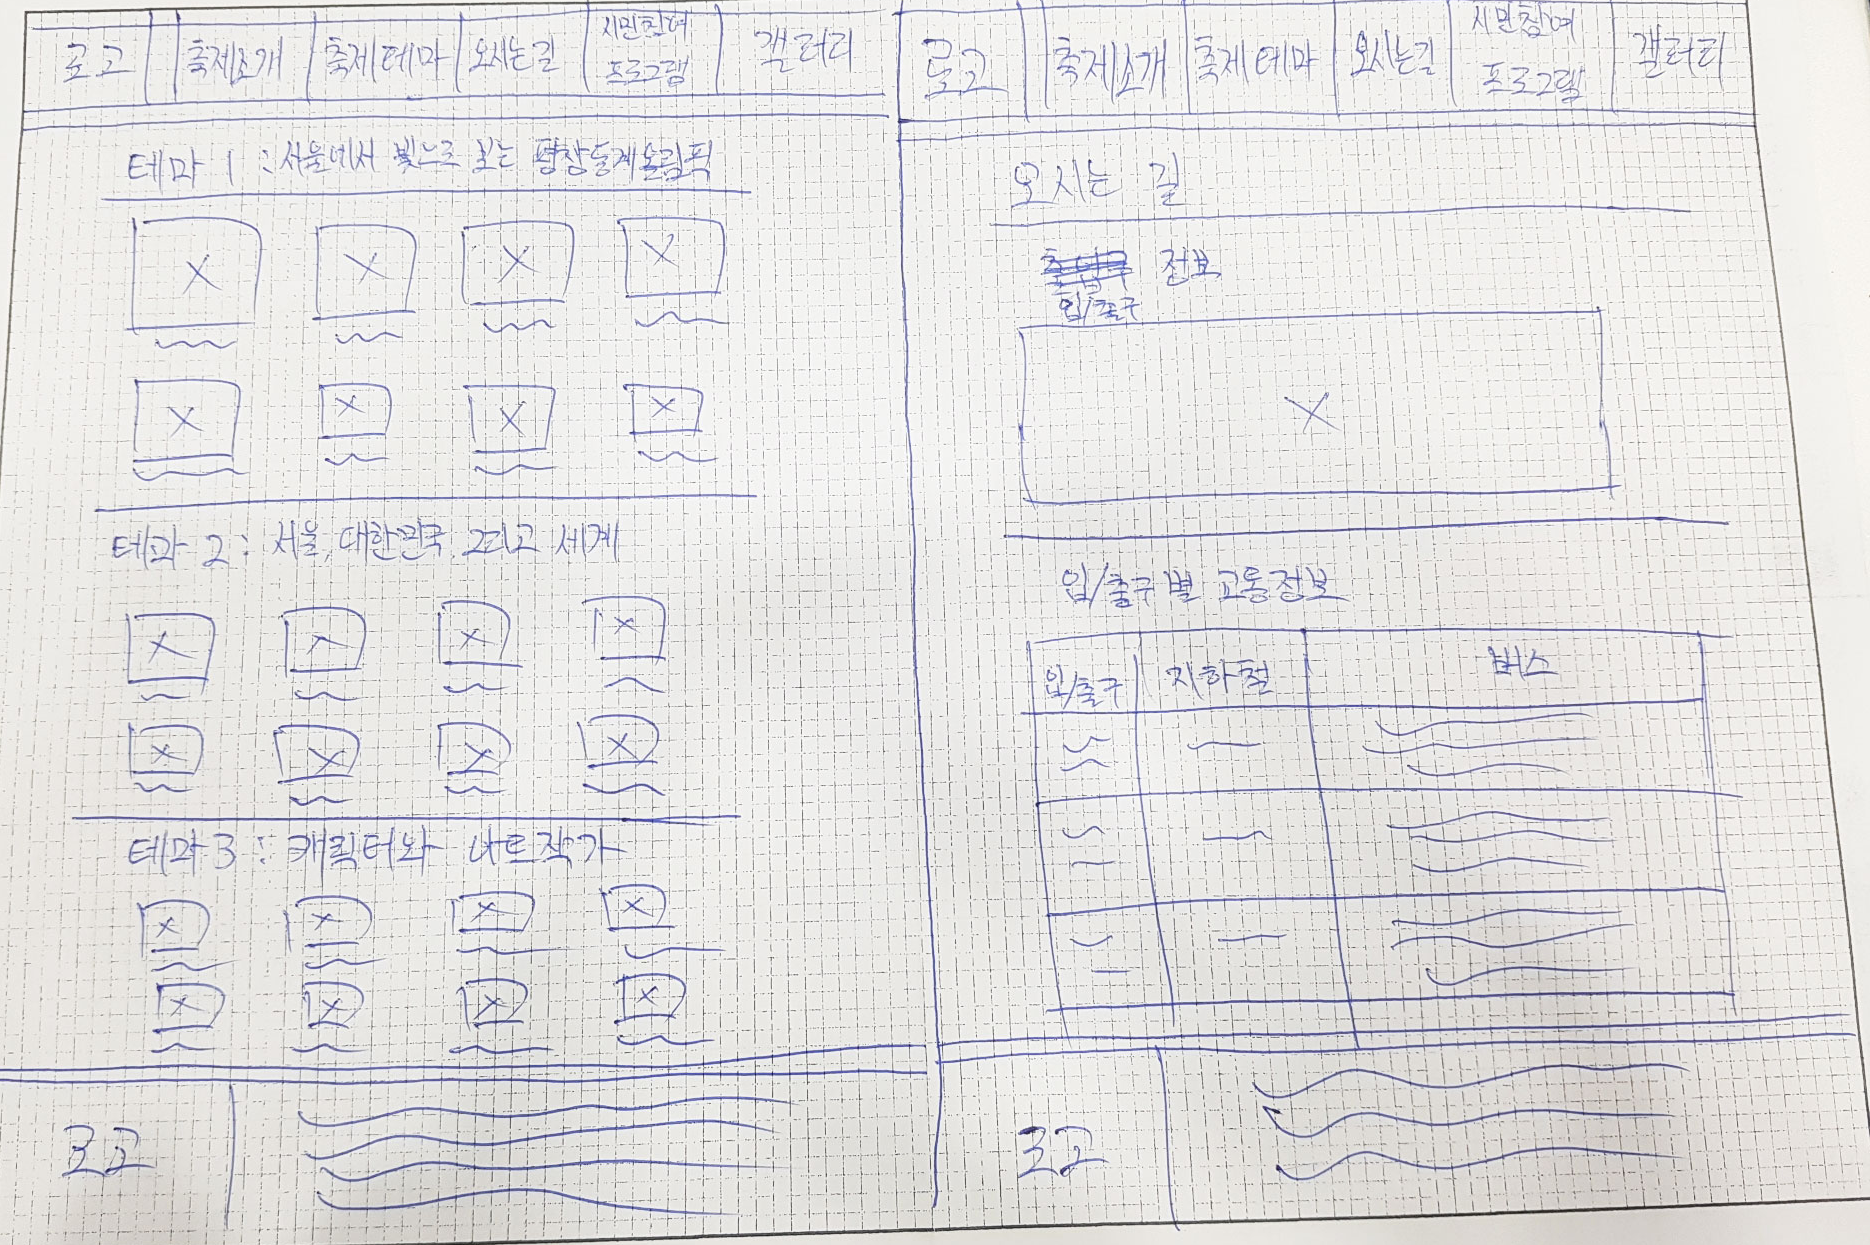 로고 축제소개 축제테마 오시는길 시민참여 프로그램 갤러리
테마 1 : 서울에서 빛으로 보는 평창동계올림픽
테마 2 : 서울, 대한민국, 그리고 세계
테마 3 : 캐릭터와 아트작가
로고
로고 축제소개 축제테마 오시는길 시민참여 프로그램 갤러리
오시는 길
정보
입/출구
입/출구별 교통정보
입/출구 지하철 버스
로고